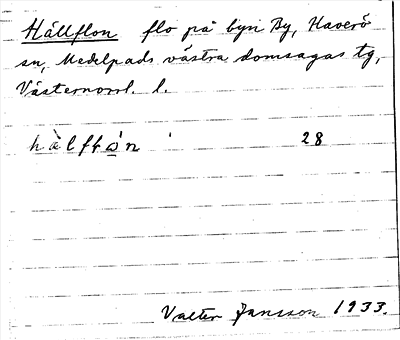 Hällflon flo på byn By, Haverö
sn, Medelpads västra domsagas tg,
Västernorrl. l.
28
Valter Jansson 1933.